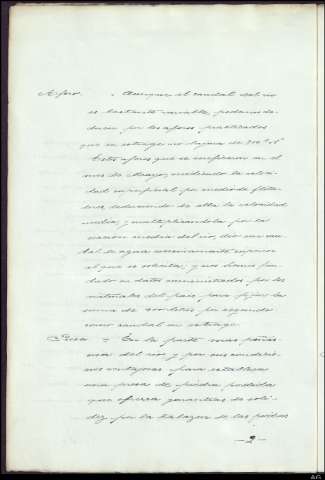 Aforo. - Aunque el caudal del río
es bastante variable, podemos de-
ducir por los aforos practicados
que en estiage no bajará de
Estos aforos que se verificaron en el
mes de Mayo, midiendo la veloci-
dad superficial por medio de flota-
dores, deduciendo de ella la velocidad
media, y multiplicándola por la
sección media del río, dio un cau-
dal de agua superior
al que se solicita, y nos hemos fun-
dado en datos suministrados por los
naturales del país, para fijar la
suma de litros por segundo
como caudal en estiage.
Presa - En la parte mas peñas-
cosa del río y por sus condicio-
nes ventajosas para establecer
una presa de piedra perdida
que ofrezca garantías de soli-
déz por la trabazon de las piedras
- 2 -
AG